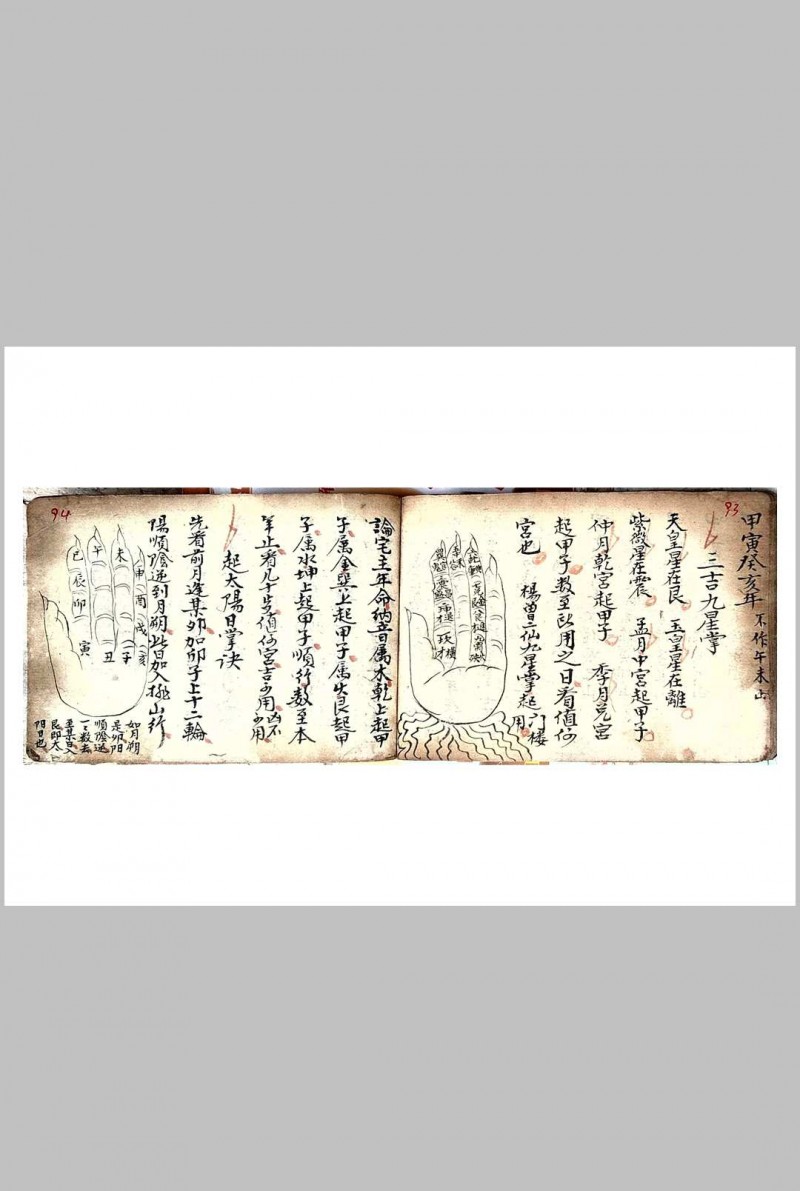 93
甲寅癸亥年 不作午未山
三吉九星掌
天皇星在艮 玉皇星在離
紫微星在震 孟月中宮起甲子
仲月乾宮起甲子 季月兌宮
起甲子数至所用之日看值何
宮也 楊曽二仙九星掌起門樓
用
論宅主年命納音属木乾上起甲
子属金巽上起甲子属火艮起甲
子属水坤上起甲子順行数至本
年止看几十歩值何宮吉可用凶不
可用
起太陽日掌訣
先看前月逢某卯加卯子上十二輪
陽順隂逆到月朔皆加入挑山行
94
未
午
巳
辰
卯
寅
丑
子
申
酉
戌
亥
如月朔
是卯阳
順隂逆
数去
至某旦
艮即太
阳日也